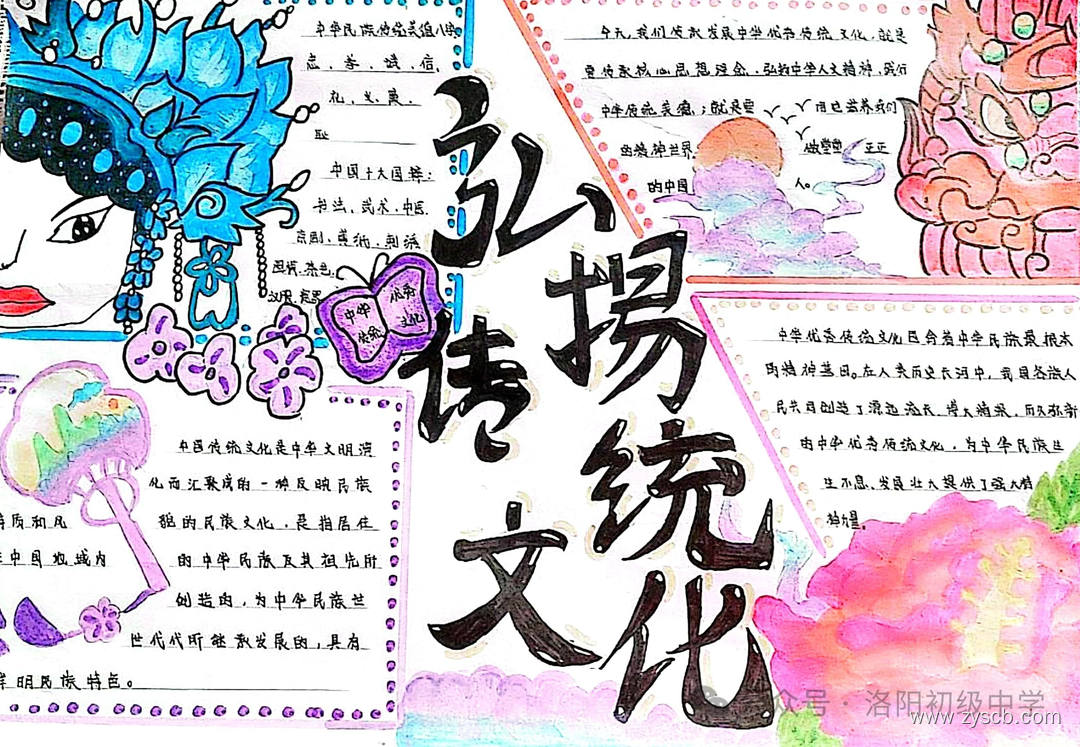 中华民族传统美德八字
忠、孝、诚、信、
礼、义、廉、
耻
中国十大国粹：
书法、武术、中医、
京剧、剪纸、刺绣
围棋、茶艺、
汉服、瓷器
中华
传统
优秀
文化
弘扬
传统
文化
今天，我们传承发展中华优秀传统文化，就是
要传承核心思想理念、弘扬中华人文精神、践行
中华传统美德，就是要用它滋养我们
的精神世界，做堂堂正正
的中国人。
中国传统文化是中华文明演
化而汇聚成的一种反映民族
特质和风貌的民族文化，是指居住
在中国地域内的中华民族及其祖先所
创造的，为中华民族世
世代代所继承发展的，具有
鲜明民族特色。
中华优秀传统文化包含着中华民族最根本
的精神基因。在人类历史长河中，我国各族人
民共同创造了源远流长、博大精深、而久弥新
的中华优秀传统文化，为中华民族生
生不息、发展壮大提供了强大精
神力量。
公众号·洛阳初级中学
www.zyscb.com